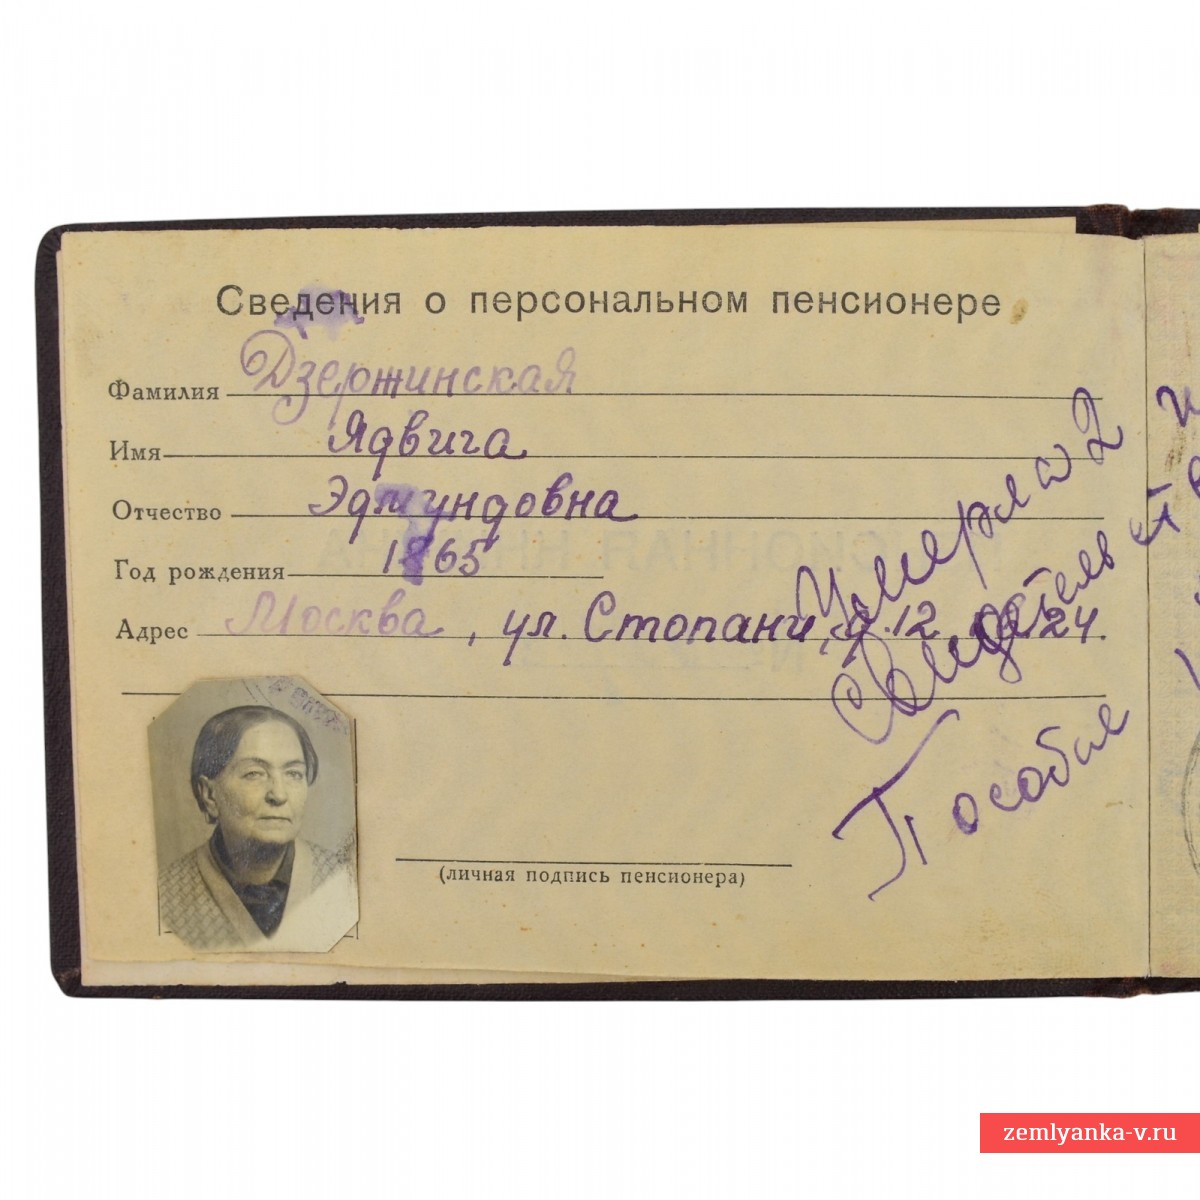 Сведения о персональном пенсионере
Фамилия Дзержинская
Имя Ядвига
Отчество Эдмундовна
Год рождения 1865
Адрес Москва, ул. Стопани, д. 12 24.
(личная подпись пенсионера)
Умерла 2
Свидетельст
Пособие
zemlyanka-v.ru